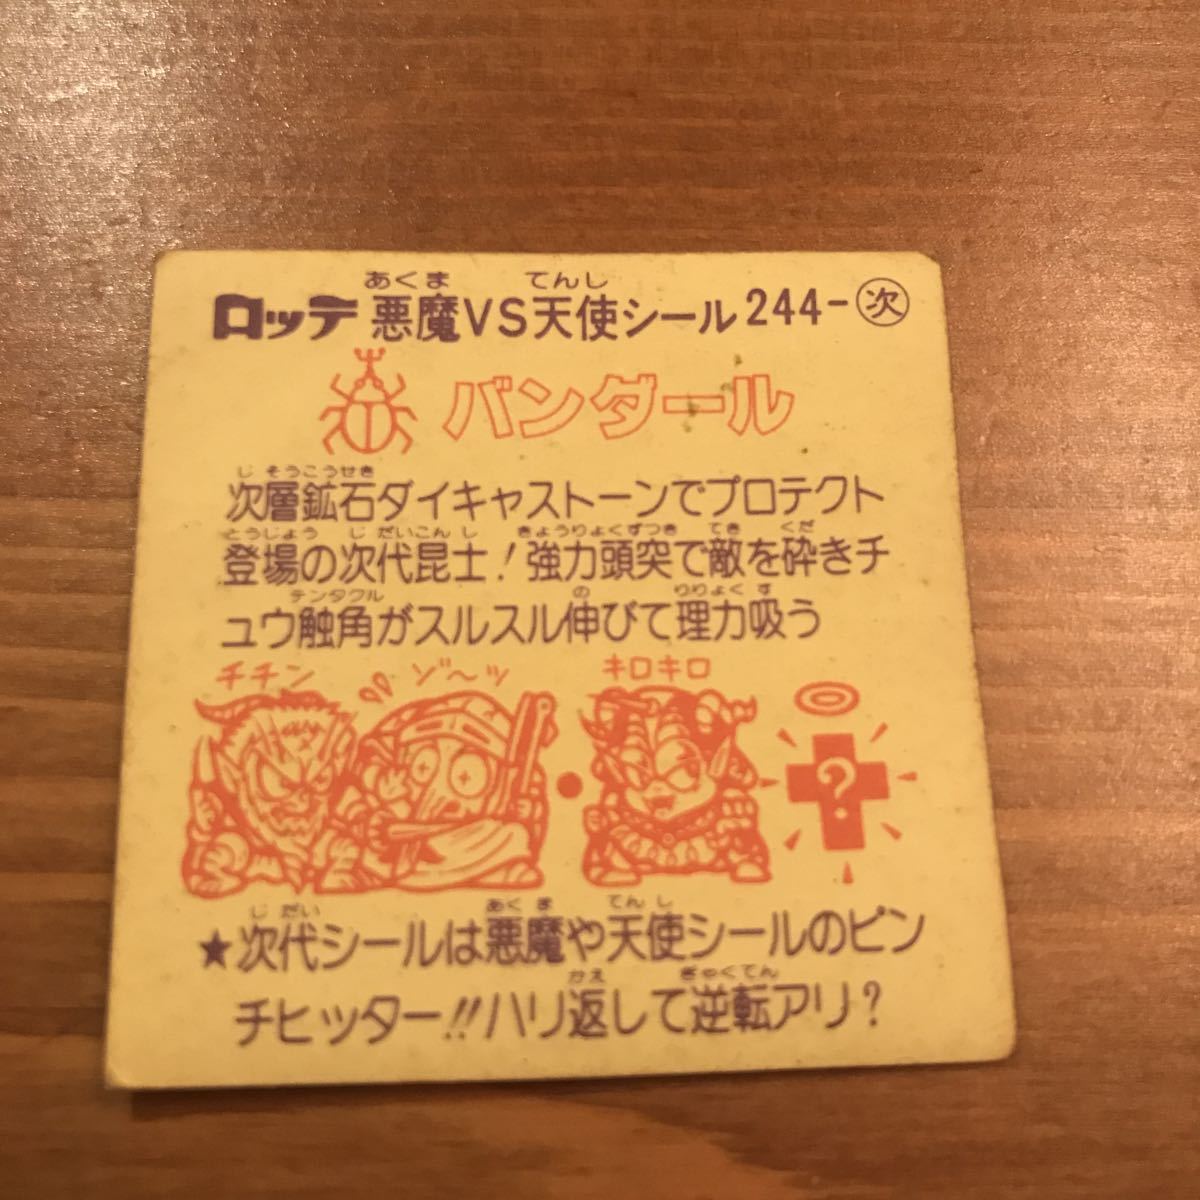 あくま てんし
ロッテ 悪魔VS天使シール 244-次
バンダール
じそうこうせき
次層鉱石ダイキャストーンでプロテクト
とうじょう じだいこんし きょうりょくずつき てき くだ
登場の次代昆士!強力頭突で敵を砕きチ
テンタクル の りりょく す
ュウ触角がスルスル伸びて理力吸う
チチン ゾ〜ッ キロキロ
?
じだい あくま てんし
★次代シールは悪魔や天使シールのピン
かえ ぎゃくてん
チヒッター!!ハリ返して逆転アリ?